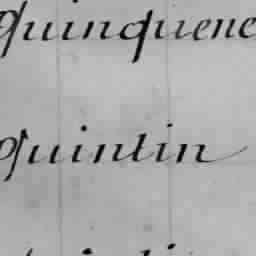 quinquene
quintin